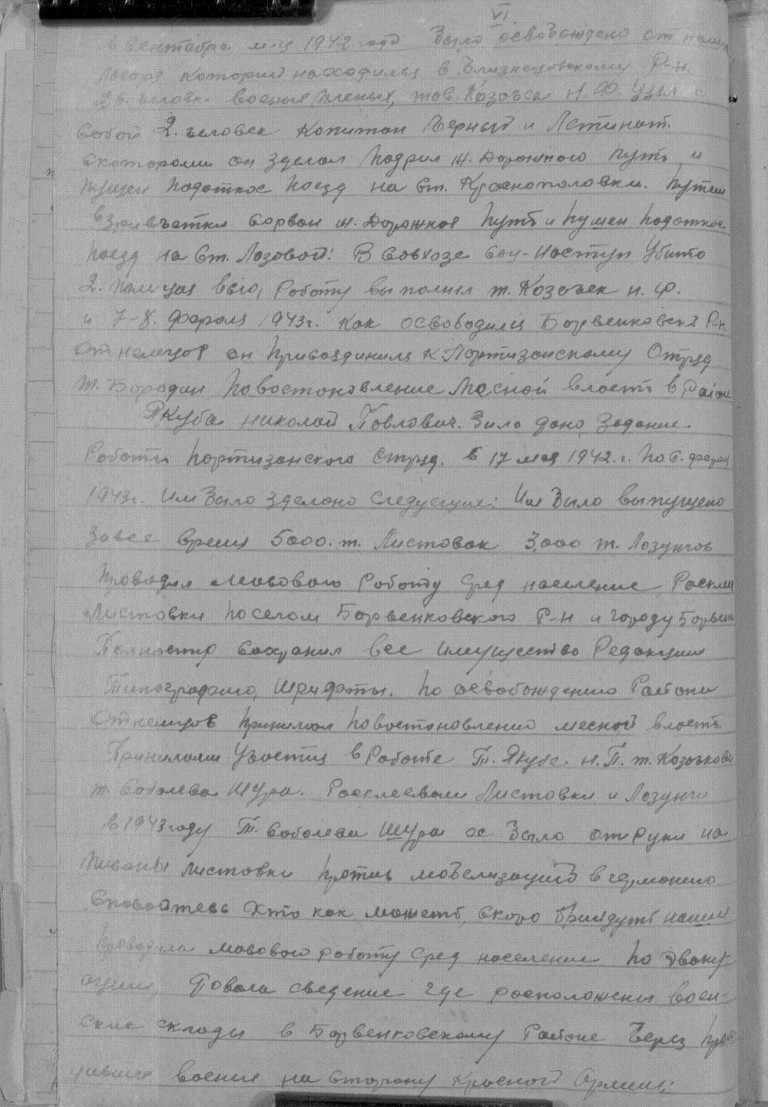 VI
в Сентября м-ц 1942 года было освобождено от
лагеря который находильц в Близнецовскому Р-н.
26. человек военых пленых, тов. Козочек Н. Ф.
собой 2. человек Копитан Черный и Летинат.
скоторами он зделал подрил ж. Дорожного путь и
пущен подоткос поезд на Ст. Краснополовки. Путем
сорван ж. Дорожная путь и пущен подоткос
поезд на Ст. Лозовой: В Совхозе соц-Наступ Убито
2. полицая всю, роботу выполнил т. Козочек Н. Ф.
и 7-8. февраля 1943г. Как освободили Борвенковский Р-н
От немцов он присоздинилц к Портизанскому Отряд
т. Бородин повостоновление Месной власть в Район
Якуба Николай Повлович. Било дано Задание.
Роботи портизанского Отряд. в 17 мая 1942. г. по 6. феврал
1943г. Им было зделано следующие: Им было выпущено
За все время 5000. т. Листовок 3,000 т. Лозунгов
проводил Мовового роботу сред население,
Листовки поселом Борвенковского Р-н и городу Борвен
Полностю Сохранил все имущество Редакции
Типографию, Шрифты. по освобождению Района
От немцов принимал повостоновлении месной власть
Принимали Участия в работе Т. Якубе. Н. П. т. Козочкова
т. Соболева Шура. Расклеевали Листовки и Лозунги
в 1943 году Т. Соболева Шура ос было отируки на
писаны листовки против мобелизацией в германию
Спосайтесь Хто как может, скоро прийдут наши
проводила мовового роботу сред население по эваку-
ации, Говала сведение где росположены воен-
ские склады в Борвенковскому Районе Через
военые на сторону Красной Армии: